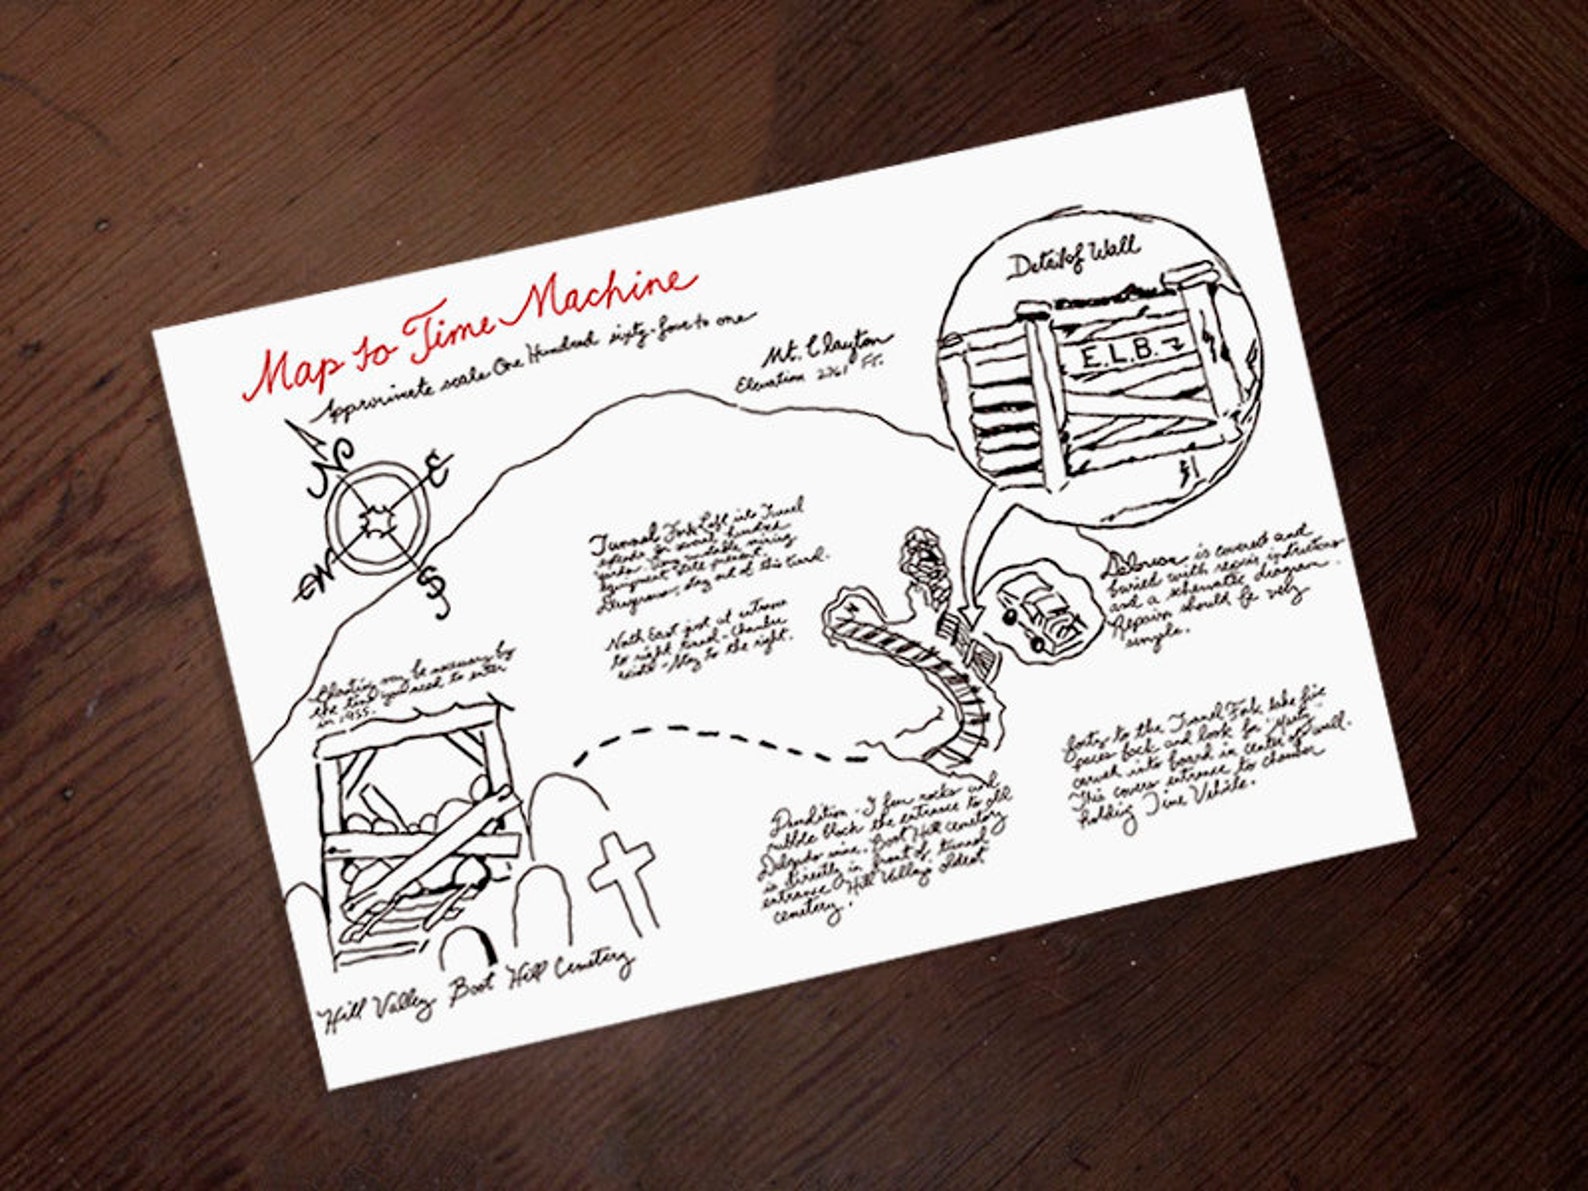 Map to Time Machine
Approximate scale One Hundred sixty-four to one
Mt. Clayton
Elevation 2361 Ft.
Detail of Wall
E.L.B.
N
E
S
W
Tunnel Fork Left into Tunnel
extends for several hundred
yards. Very unstable mining
equipment still present.
Dangerous, stay out of this tunnel.
North East just at entrance
to right tunnel - chamber
exists - stay to the right.
Delorean is covered and
buried with repair instructions
and a schematic diagram.
Repairs should be very
simple.
Blasting may be necessary by
the time you need to enter
in 1955.
Forty to the Tunnel Fork take five
paces back and look for
carved into board in center of wall.
This covers entrance to chamber
holding Time Vehicle.
Condition - I fear rocks and
rubble block the entrance to old
Delgado mine. Boot Hill Cemetery
is directly in front of tunnel
entrance, Hill Valley's oldest
cemetery.
Hill Valley Boot Hill Cemetery